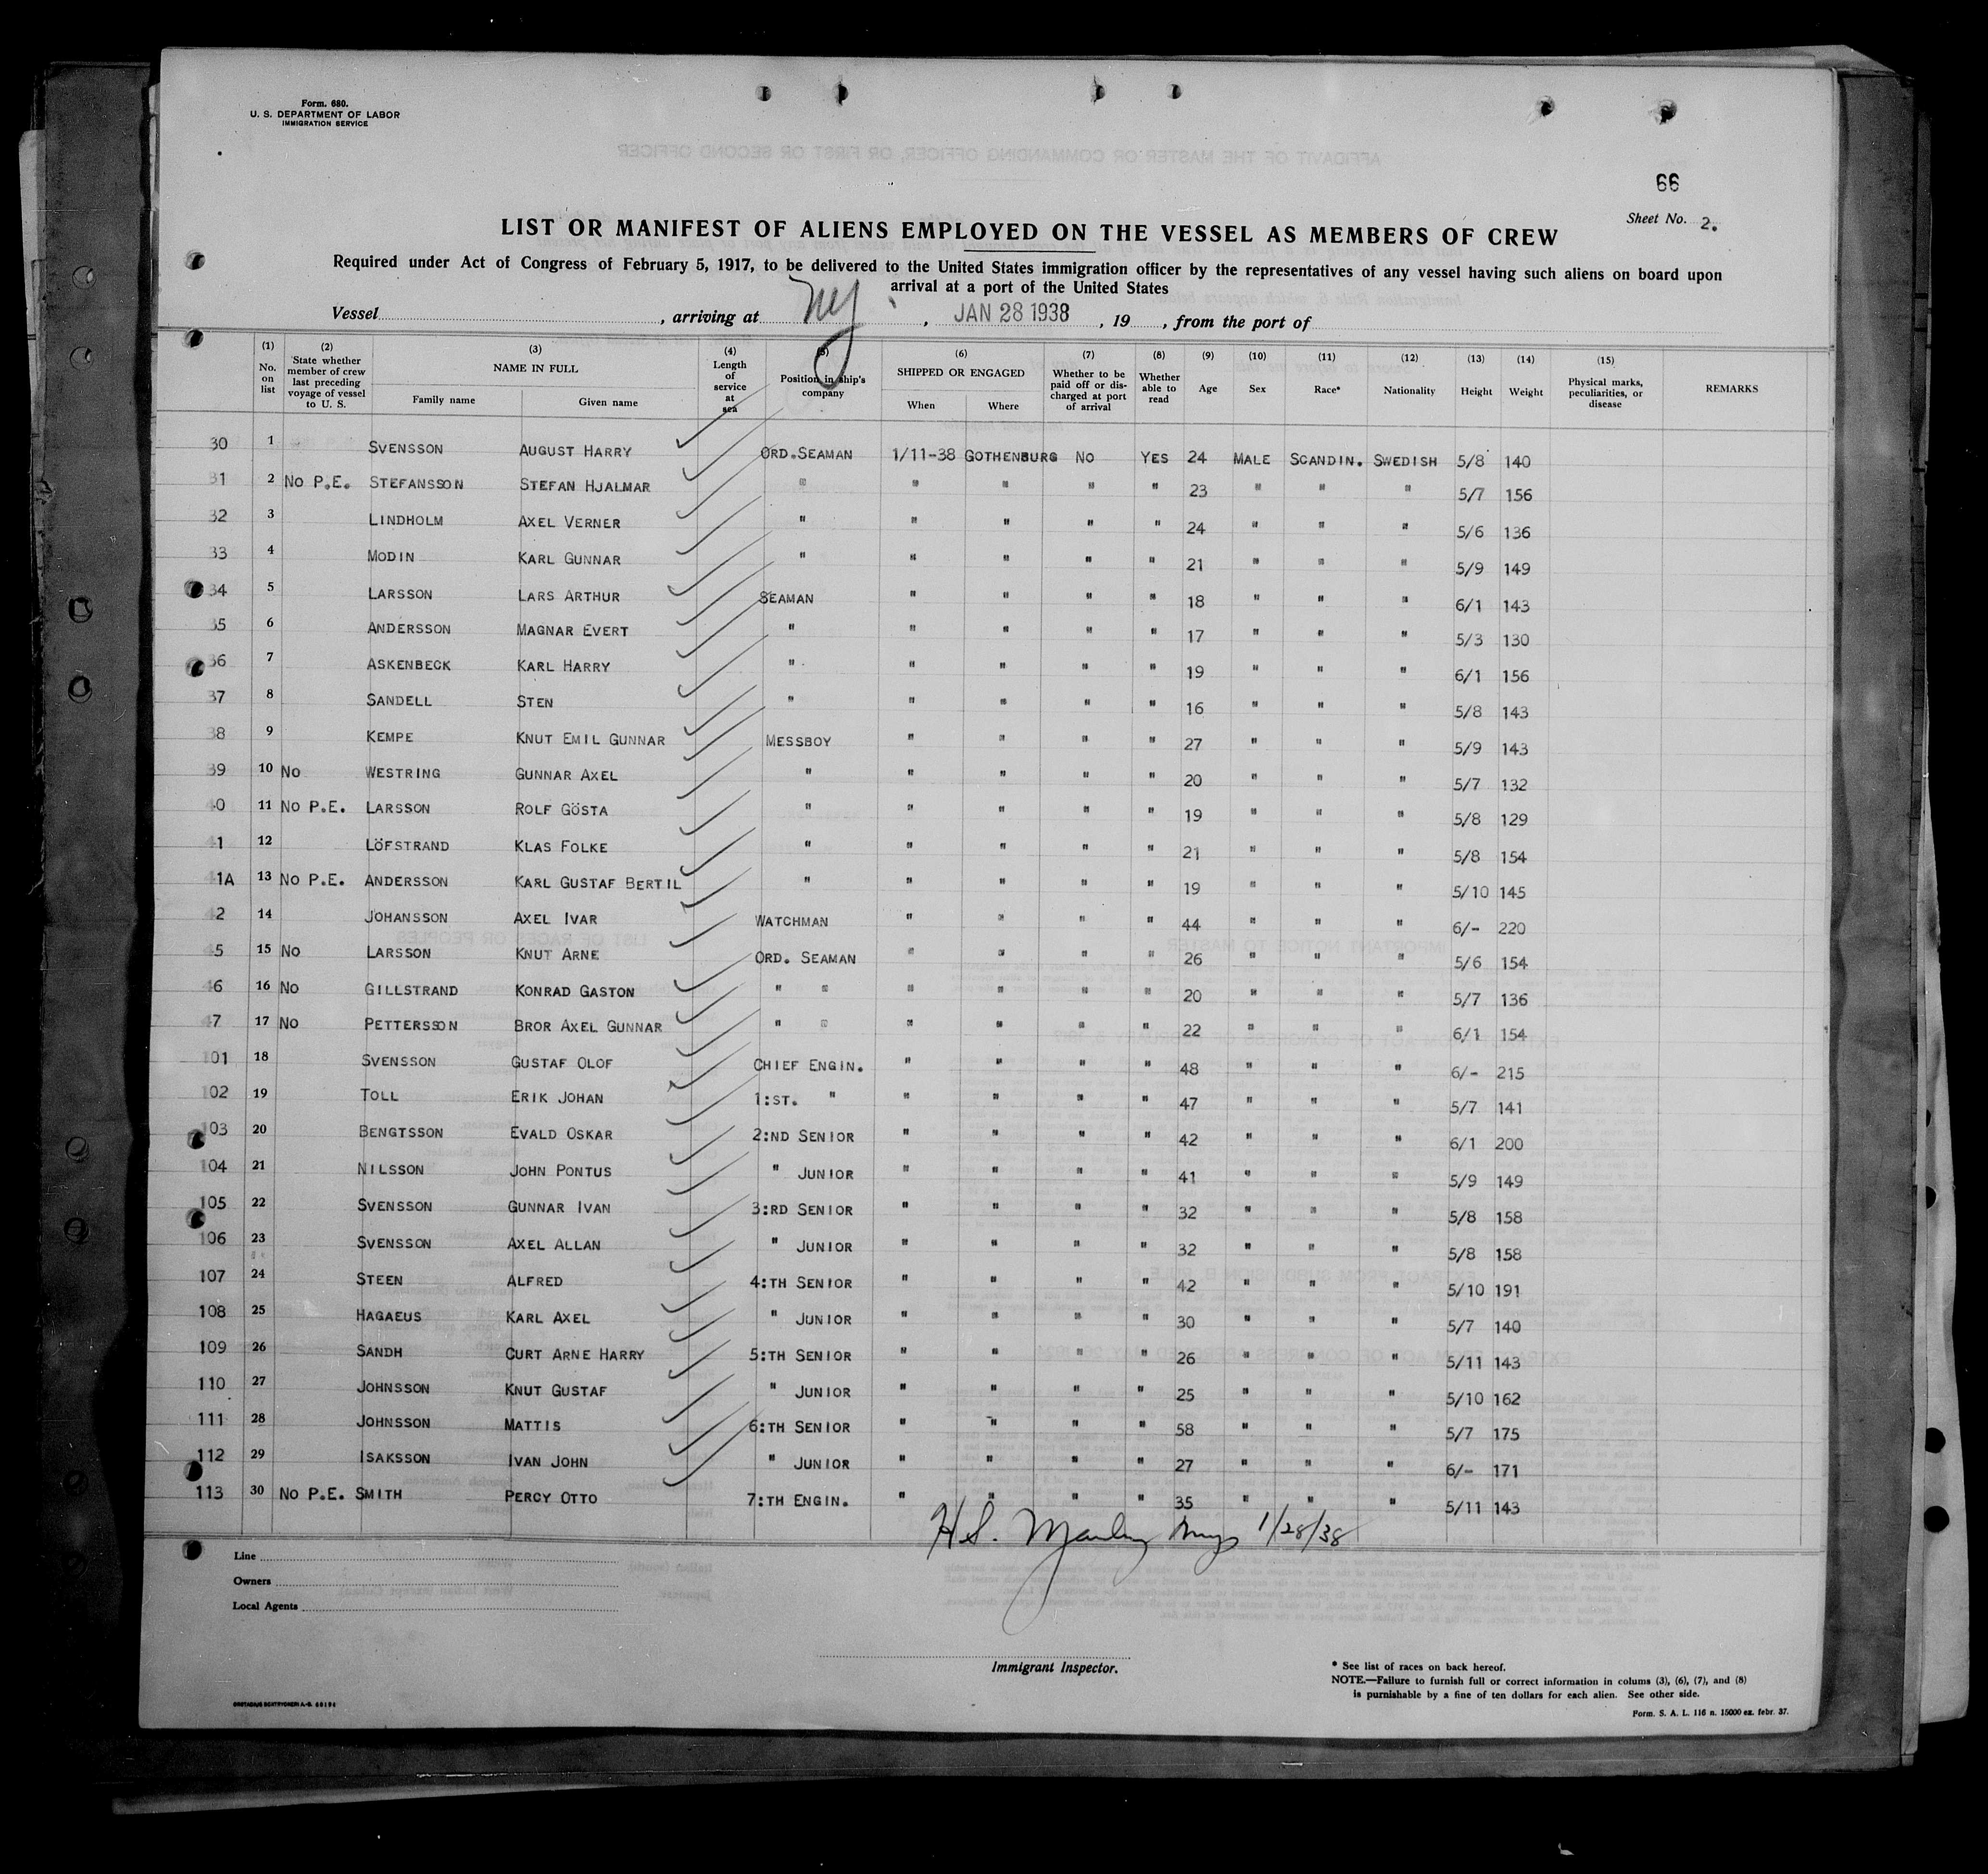 Form. 680.
U. S. DEPARTMENT OF LABOR
IMMIGRATION SERVICE
66
Sheet No. 2.
LIST OR MANIFEST OF ALIENS EMPLOYED ON THE VESSEL AS MEMBERS OF CREW
Required under Act of Congress of February 5, 1917, to be delivered to the United States immigration officer by the representatives of any vessel having such aliens on board upon
arrival at a port of the United States
Vessel , arriving at NY , JAN 28 1938 , 19 , from the port of
(1) No. on list (2) State whether member of crew last preceding voyage of vessel to U. S. (3) NAME IN FULL Family name Given name (4) Length of service at sea (5) Position in ship's company (6) SHIPPED OR ENGAGED When Where (7) Whether to be paid off or discharged at port of arrival (8) Whether able to read (9) Age (10) Sex (11) Race* (12) Nationality (13) Height (14) Weight (15) Physical marks, peculiarities, or disease REMARKS
30 1 SVENSSON AUGUST HARRY ORD.SEAMAN 1/11-38 GOTHENBURG NO YES 24 MALE SCANDIN. SWEDISH 5/8 140
31 2 NO P.E. STEFANSSON STEFAN HJALMAR " " " " " 23 " " " 5/7 156
32 3 LINDHOLM AXEL VERNER " " " " " 24 " " " 5/6 136
33 4 MODIN KARL GUNNAR " " " " " 21 " " " 5/9 149
34 5 LARSSON LARS ARTHUR SEAMAN " " " " 18 " " " 6/1 143
35 6 ANDERSSON MAGNAR EVERT " " " " " 17 " " " 5/3 130
36 7 ASKENBECK KARL HARRY " " " " " 19 " " " 6/1 156
37 8 SANDELL STEN " " " " " 16 " " " 5/8 143
38 9 KEMPE KNUT EMIL GUNNAR MESSBOY " " " " 27 " " " 5/9 143
39 10 NO WESTRING GUNNAR AXEL " " " " " 20 " " " 5/7 132
40 11 NO P.E. LARSSON ROLF GÖSTA " " " " " 19 " " " 5/8 129
41 12 LÖFSTRAND KLAS FOLKE " " " " " 21 " " " 5/8 154
41A 13 NO P.E. ANDERSSON KARL GUSTAF BERTIL " " " " " 19 " " " 5/10 145
42 14 JOHANSSON AXEL IVAR WATCHMAN " " " " 44 " " " 6/- 220
45 15 NO LARSSON KNUT ARNE ORD. SEAMAN " " " " 26 " " " 5/6 154
46 16 NO GILLSTRAND KONRAD GASTON " " " " " " 20 " " " 5/7 136
47 17 NO PETTERSSON BROR AXEL GUNNAR " " " " " " 22 " " " 6/1 154
101 18 SVENSSON GUSTAF OLOF CHIEF ENGIN. " " " " 48 " " " 6/- 215
102 19 TOLL ERIK JOHAN 1:ST. " " " " " 47 " " " 5/7 141
103 20 BENGTSSON EVALD OSKAR 2:ND SENIOR " " " " 42 " " " 6/1 200
104 21 NILSSON JOHN PONTUS " JUNIOR " " " " 41 " " " 5/9 149
105 22 SVENSSON GUNNAR IVAN 3:RD SENIOR " " " " 32 " " " 5/8 158
106 23 SVENSSON AXEL ALLAN " JUNIOR " " " " 32 " " " 5/8 158
107 24 STEEN ALFRED 4:TH SENIOR " " " " 42 " " " 5/10 191
108 25 HAGAEUS KARL AXEL " JUNIOR " " " " 30 " " " 5/7 140
109 26 SANDH CURT ARNE HARRY 5:TH SENIOR " " " " 26 " " " 5/11 143
110 27 JOHNSSON KNUT GUSTAF " JUNIOR " " " " 25 " " " 5/10 162
111 28 JOHNSSON MATTIS 6:TH SENIOR " " " " 58 " " " 5/7 175
112 29 ISAKSSON IVAN JOHN " JUNIOR " " " " 27 " " " 6/- 171
113 30 NO P.E. SMITH PERCY OTTO 7:TH ENGIN. " " " " 35 " " " 5/11 143
H.S. 1/28/38
Line
Owners
Local Agents
Immigrant Inspector.
* See list of races on back hereof.
NOTE.—Failure to furnish full or correct information in colums (3), (6), (7), and (8)
is purnishable by a fine of ten dollars for each alien. See other side.
Form. S. A. L. 116 n. 15000 ex. febr. 37.